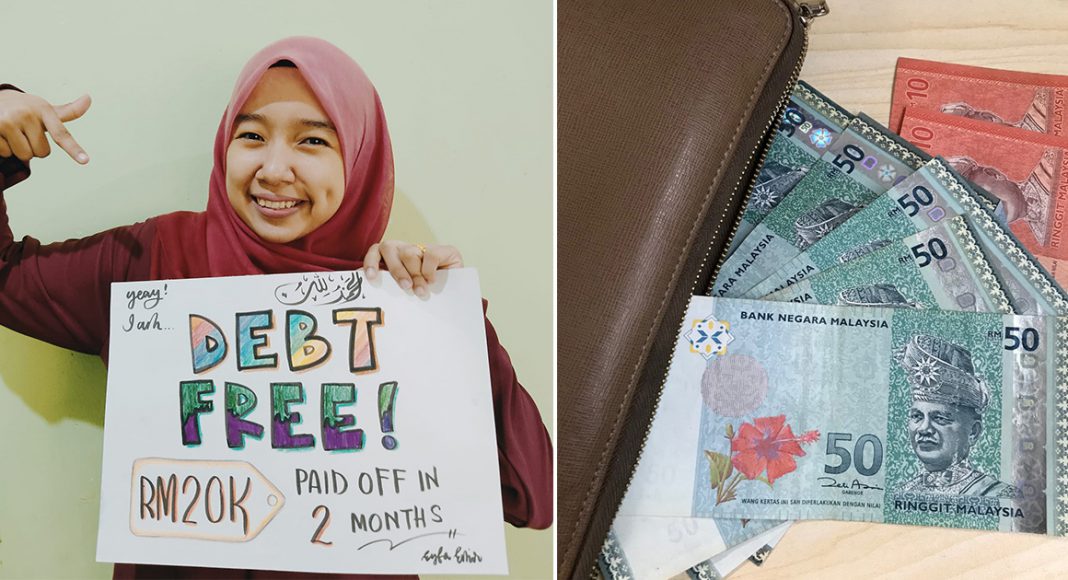 yeay!
I am...
الحمد لله
DEBT
FREE!
RM20K
PAID OFF IN
2 MONTHS
10
10
RINGGIT MALAYSIA
50
50
RM50
RM50
MALAYSIA
MALAYSIA
BANK NEGARA MALAYSIA
RM50
50
GABENOR
WANG KERTAS INI SAH DIPERLAKUKAN DENGAN NILAI
RINGGIT MALAYSIA
50